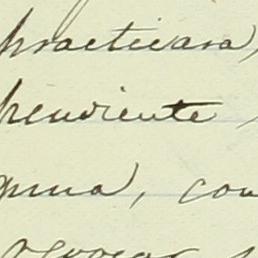 practicara
pendiente
guna, con